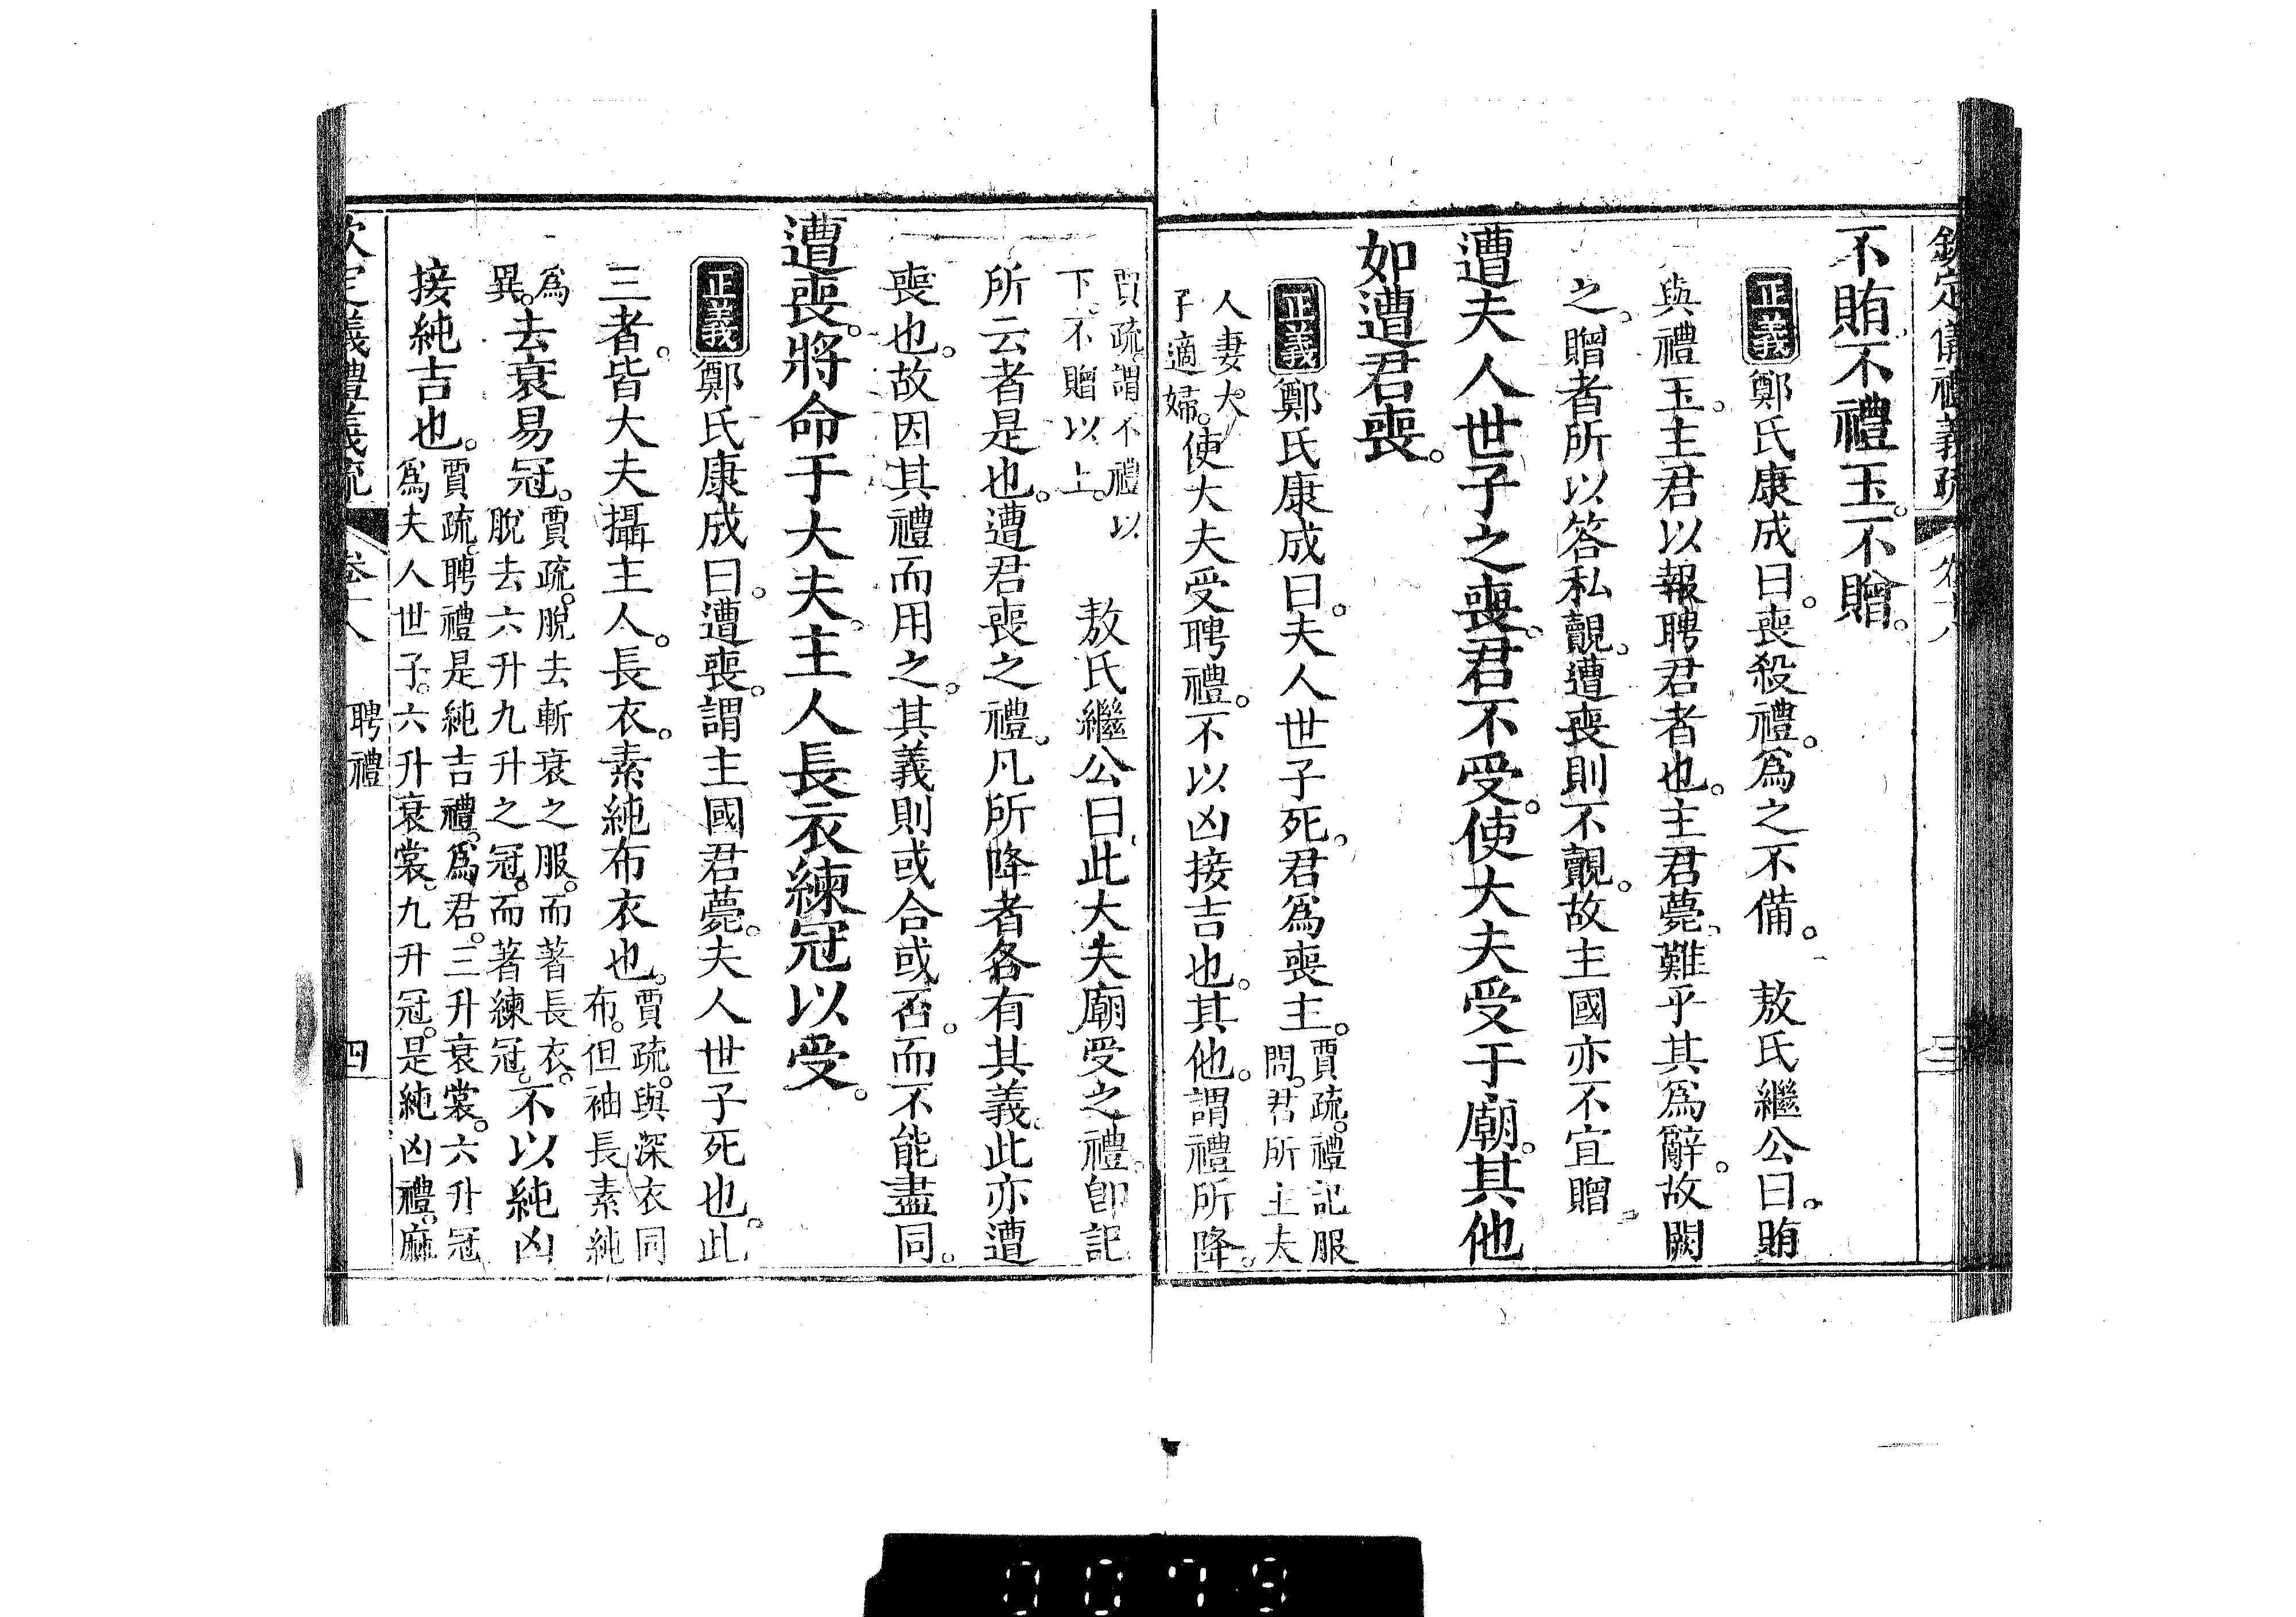 欽定儀禮義疏 卷十八 三
不賄不禮玉不贈。
正義 鄭氏康成曰。喪殺禮。爲之不備。 敖氏繼公曰。賄
與禮玉。主君以報聘君者也。主君薨、難乎其爲辭。故闕
之。贈者所以答私覿。遭喪則不覿。故主國亦不宜贈。
遭夫人世子之喪。君不受。使大夫受于廟。其他
如遭君喪。
正義 鄭氏康成曰。夫人世子死。君爲喪主。賈疏。禮記服
問。君所主夫
人妻。大
子適婦。使大夫受聘禮。不以凶接吉也。其他。謂禮所降。
賈疏。謂不禮以
下。不贈以上。 敖氏繼公曰。此大夫廟受之禮。卽記
所云者是也。遭君喪之禮。凡所降者各有其義。此亦遭
喪也。故因其禮而用之。其義則或合或否。而不能盡同。
遭喪。將命于大夫。主人長衣練冠以受。
正義 鄭氏康成曰。遭喪。謂主國君薨。夫人世子死也。此
三者。皆大夫攝主人。長衣。素純布衣也。賈疏。與深衣同
布。但袖長素純
爲
異。去衰易冠。賈疏。脫去斬衰之服。而著長衣。
脫去六升九升之冠。而著練冠。不以純凶
接純吉也。賈疏。聘禮是純吉禮。爲君。三升衰裳。六升冠
爲夫人世子。六升衰裳。九升冠。是純凶禮。麻
欽定義禮義疏 卷十八 聘禮 四
0079